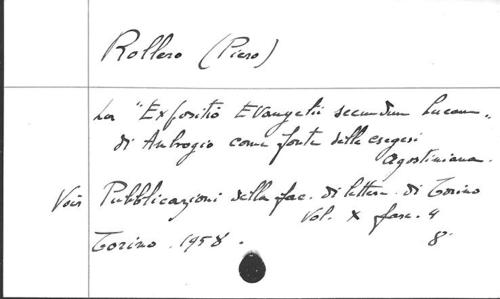 Rollero (Piero)
La "Expositio Evangelii secundum Lucam"
di Ambrogio come fonte della esegesi
agostiniana.
Voir Pubblicazioni della fac. di lettere di Torino
Vol. X fasc. 4
Torino. 1958. 8°